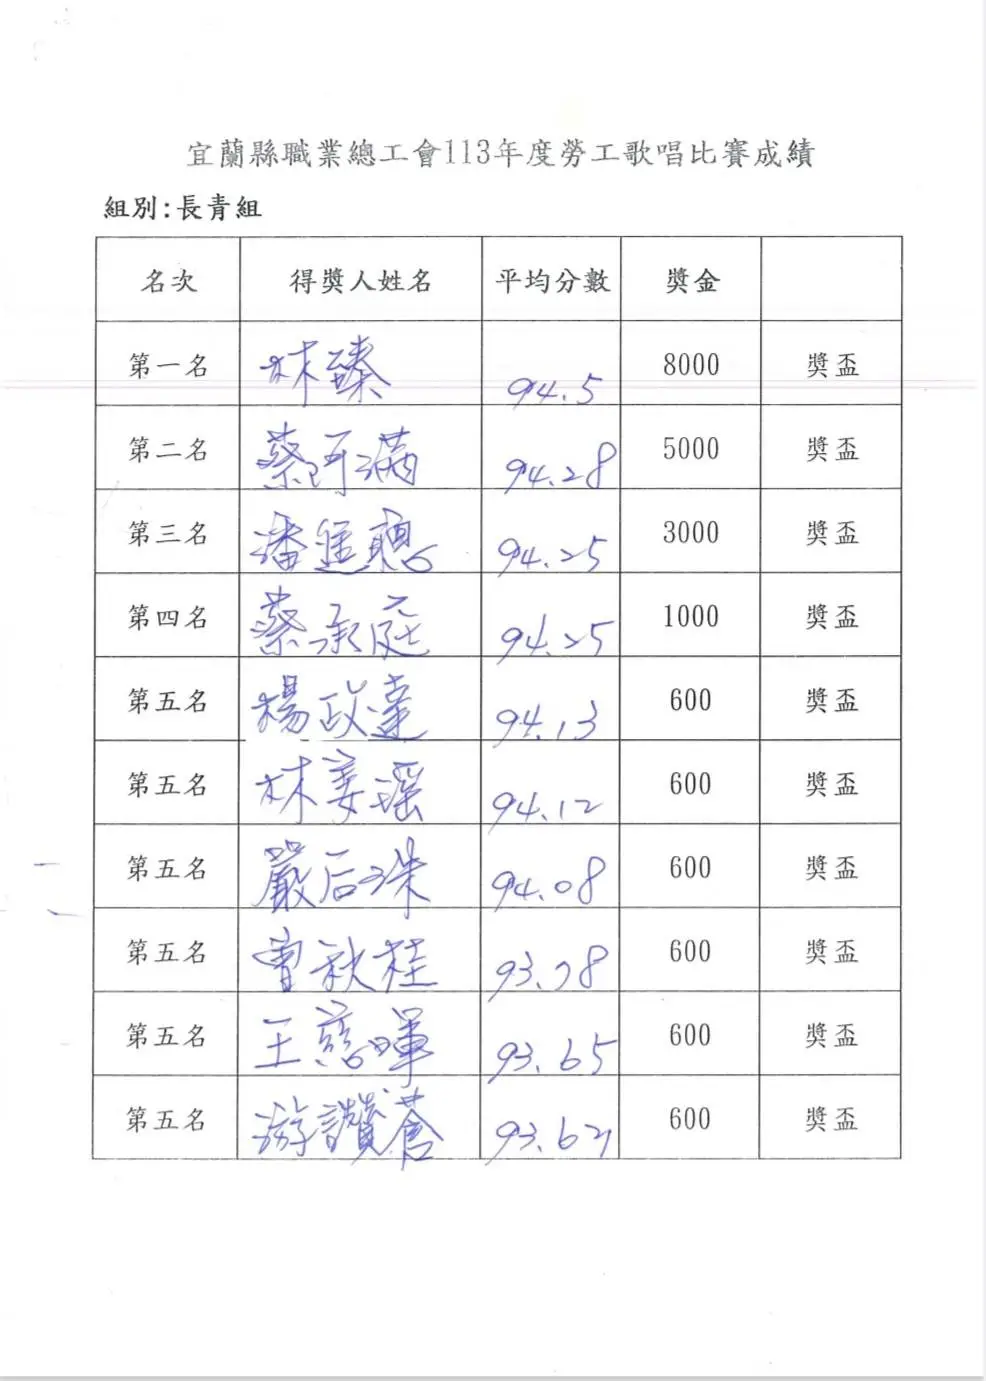 宜蘭縣職業總工會113年度勞工歌唱比賽成績
組別:長青組
名次 得獎人姓名 平均分數 獎金
第一名 林臻 94.5 8000 獎盃
第二名 蔡阿滿 94.28 5000 獎盃
第三名 潘進聰 94.25 3000 獎盃
第四名 蔡承庭 94.25 1000 獎盃
第五名 楊政達 94.13 600 獎盃
第五名 林姜瑶 94.12 600 獎盃
第五名 嚴后珠 94.08 600 獎盃
第五名 曾秋桂 93.78 600 獎盃
第五名 王慈暉 93.65 600 獎盃
第五名 游讚蒼 600 獎盃